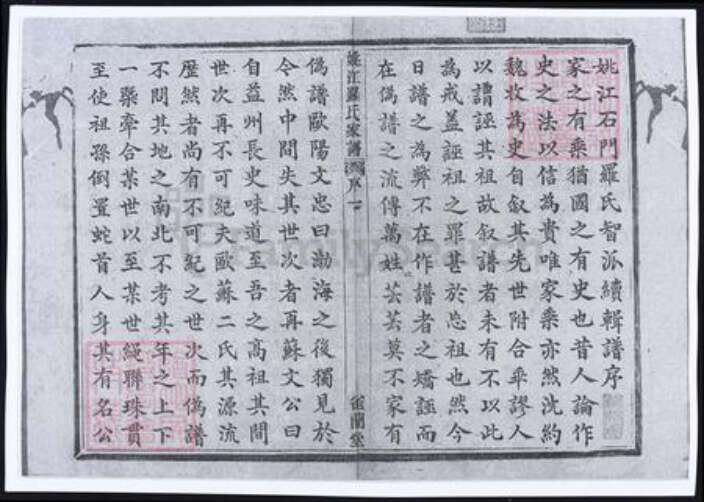 姚江石門羅氏智派續輯譜序
家之有乘猶國之有史也昔人論作
史之法以信為貴唯家乘亦然沈約
魏收為史自叙其先世附合乖謬人
以譖誣其祖故叙譜者未有不以此
為戒蓋誣祖之罪甚於忘祖也然今
日譜之為弊不在作譜者之矯誣而
在偽譜之流傳萬姓芸芸莫不家有
姚江羅氏家譜
序一
偽譜歐陽文忠曰渤海之後獨見於
今然中間失其世次者再蘇文公曰
自益州長史味道至吾之高祖其間
世次再不可紀夫歐蘇二氏其源流
歷然者尚有不可紀之世次而偽譜
不問其地之南北不考其年之上下
一槩牽合某世以至某世繩聯珠貫
至使祖孫倒置蛇首人身其有名公